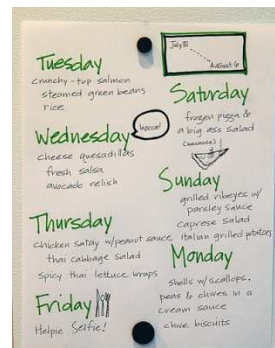 July 31
August 6
Tuesday
crunchy-top salmon
steamed green beans
rice
Wednesday
cheese quesadillas
fresh salsa
avocado relish
Thursday
chicken satay w/peanut sauce
thai cabbage salad
spicy thai lettuce wraps
Friday
Helpie Selfie!
Saturday
frozen pizza &
a big ass salad
Sunday
grilled ribeyes w/
parsley sauce
caprese salad
Italian grilled potatoes
Monday
shells w/scallops,
peas & chives in a
cream sauce
chive biscuits